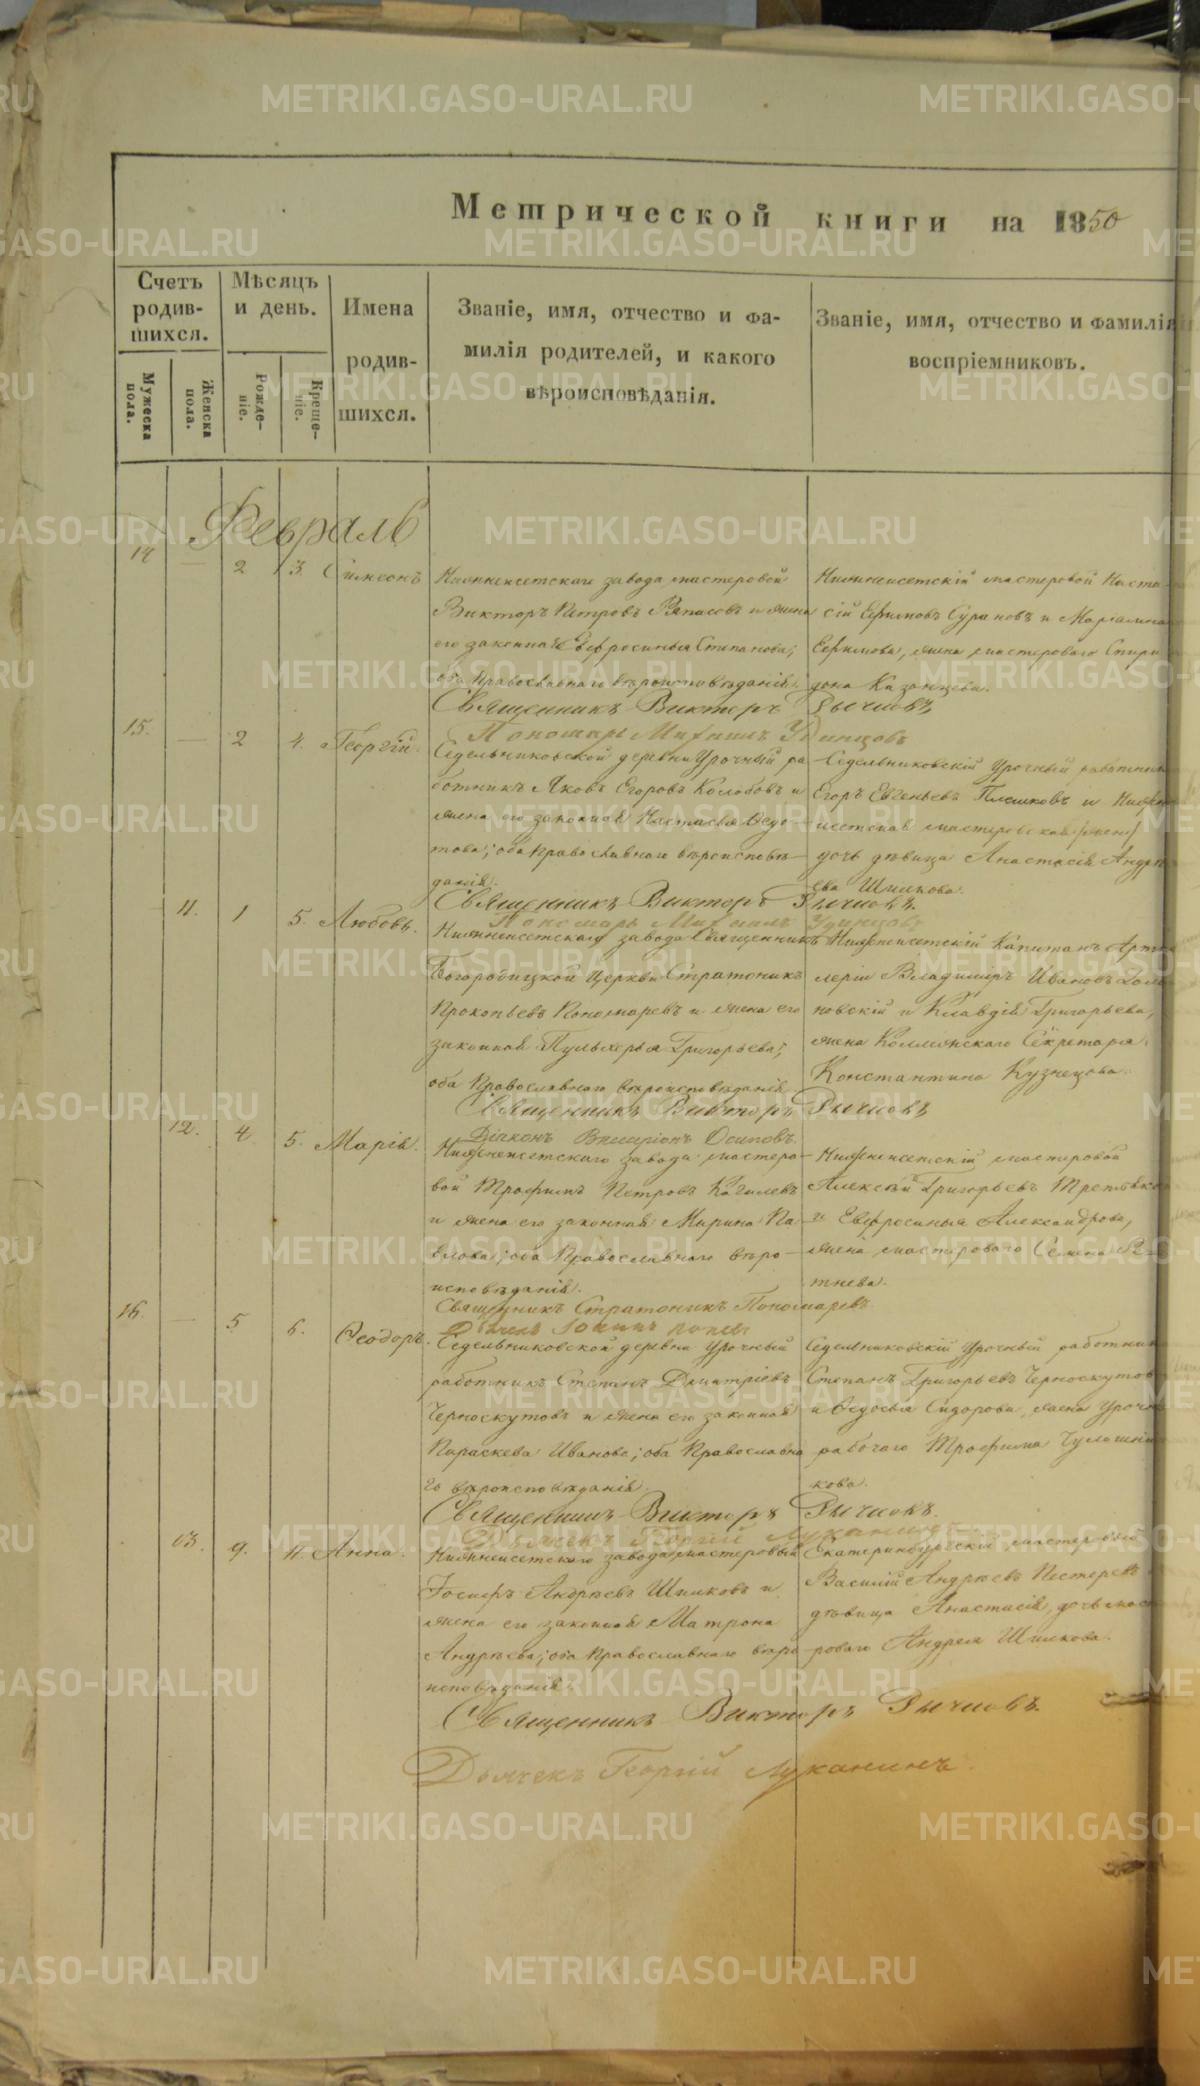 Метрической книги на 1850
Счетъ родив-шихся.
Мѣсяцъ и день.
Имена родив-шихся.
Званіе, имя, отчество и фа-
милія родителей, и какого
вѣроисповѣданія.
Званіе, имя, отчество и фамилія
воспріемниковъ.
Мужеска пола.
Женска пола.
Рожде-ніе.
Креще-ніе.
Февраль
14 — 2 3. Симеонъ
Нижнеисетскаго завода мастеровой
Викторъ Петровъ и жена
его законная Евфросинья Степанова;
оба Православнаго вѣроисповѣданія.
Нижнеисетскій мастеровой Наста-
сій Ефимовъ Сурановъ и
Ефимова, жена мастероваго Спири
дона Казанцева.
Священникъ Викторъ Рычковъ
Пономарь Михаилъ Удинцовъ
15. — 2 4. Георгій.
Седельниковской деревни Урочный ра
ботникъ Яковъ Егоровъ Колобовъ и
жена его законная Настасья Ѳедо-
това; оба православнаго вѣроисповѣ-
данія.
Седельниковскій урочный работникъ
Егоръ Евгеньевъ Плешковъ и Нижне
исетская мастерская
дочь дѣвица Анастасія Андре
ева Шилкова.
Священникъ Викторъ Рычковъ.
Пономарь Михаилъ Удинцовъ
11. 1 5. Любовь.
Нижнеисетскаго завода Священникъ
Богородицкой Церкви Стратоникъ
Прокопьевъ Пономаревъ и жена его
законная Пульхерья Григорьева;
оба Православнаго вѣроисповѣданія.
Нижнеисетскій Капитанъ Арти
леріи Владимиръ Ивановъ
и Клавдія Григорьева,
жена Коллежскаго Секретаря
Константина Кузнецова.
Священникъ Викторъ Рычковъ
Діаконъ Виссаріонъ Осиповъ.
12. 4 5. Марія.
Нижнеисетскаго завода мастеро-
вой Трофимъ Петровъ
и жена его законная Марина Па
влова; оба Православнаго вѣро-
исповѣданія.
Нижнеисетскій мастеровой
Алексѣй Григорьевъ
и Евфросинья Александрова,
жена мастероваго Семена
Священникъ Стратоникъ Пономаревъ
16. — 5 6. Ѳеодоръ.
Седельниковской деревни урочный
работникъ Степанъ Дмитріевъ
Черноскутовъ и жена его законная
Параскева Иванова; оба Православна
го вѣроисповѣданія.
Седельниковскій урочный работникъ
Степанъ Григорьевъ Черноскутов
и Ѳедосья Сидорова, жена урочна
рабочаго Трофима
кова.
Священникъ Викторъ Рычковъ.
Дьячекъ Георгій Луканинъ
13. 9. 11. Анна.
Нижнеисетскаго завода мастеровый
Іосифъ Андреевъ Шилковъ и
жена его законная Матрона
Андреева; оба Православнаго вѣро
исповѣданія.
Екатеринбургскій мастеровый
Василій Андреевъ Пестеревъ
дѣвица Анастасія, дочь масте
роваго Андрея Шилкова.
Священникъ Викторъ Рычковъ.
Дьячекъ Георгій Луканинъ.
METRIKI.GASO-URAL.RU